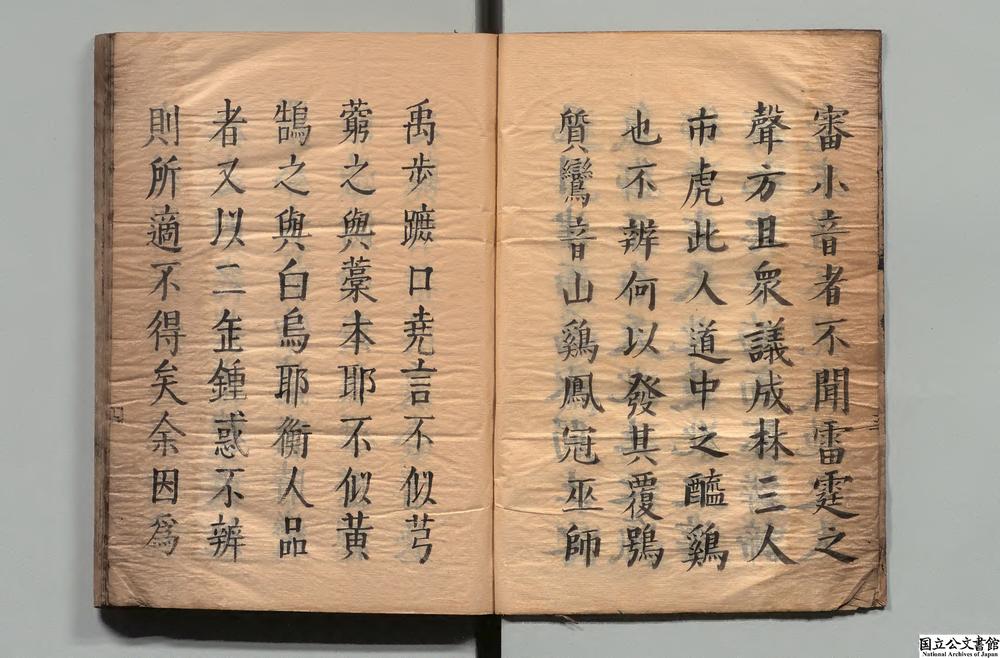 審小音者不聞雷霆之
聲方且衆議成林三人
市虎此人道中之醯鷄
也不辨何以發其覆鴞
質鸞音山鷄鳳冠巫師
禹步蹠口堯言不似芎
藭之與藁本耶不似黃
鵠之與白烏耶衡人品
者又以二缶鍾惑不辨
則所適不得矣余因爲
国立公文書館
National Archives of Japan